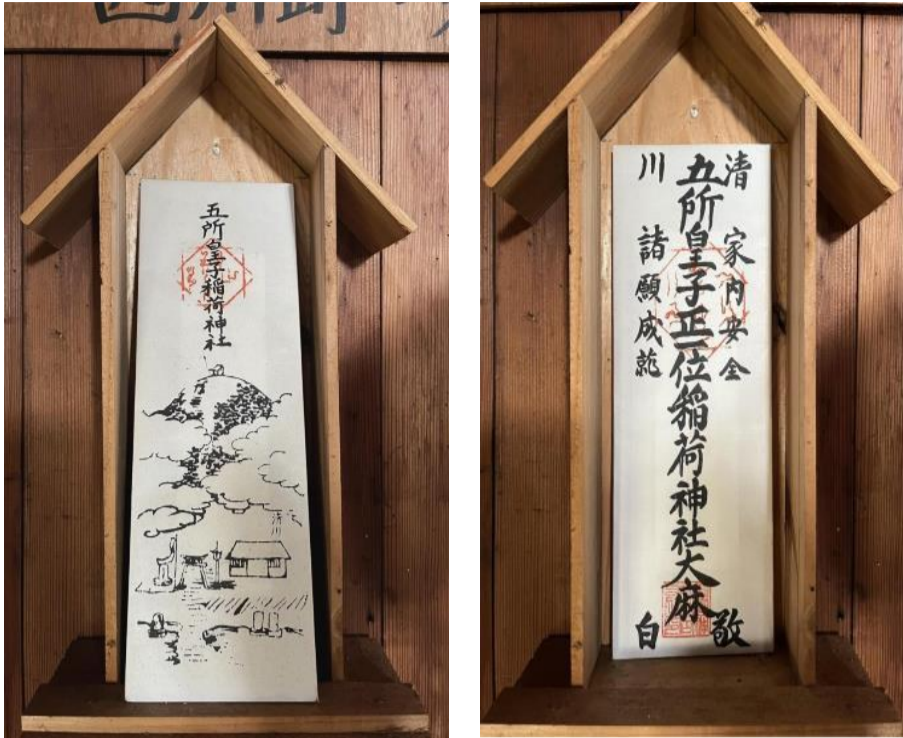 五所皇子稲荷神社
清川
清 家内安全 敬
五所皇子正一位稲荷神社大麻
川 諸願成就 白